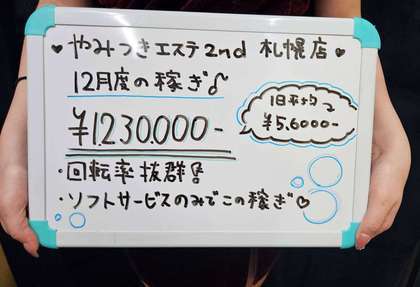 ♥やみつきエステ2nd 札幌店♥
12月度の稼ぎ♪
¥1.230.000-
1日平均
¥5.6000-
・回転率抜群!
・ソフトサービスのみでこの稼ぎ♡